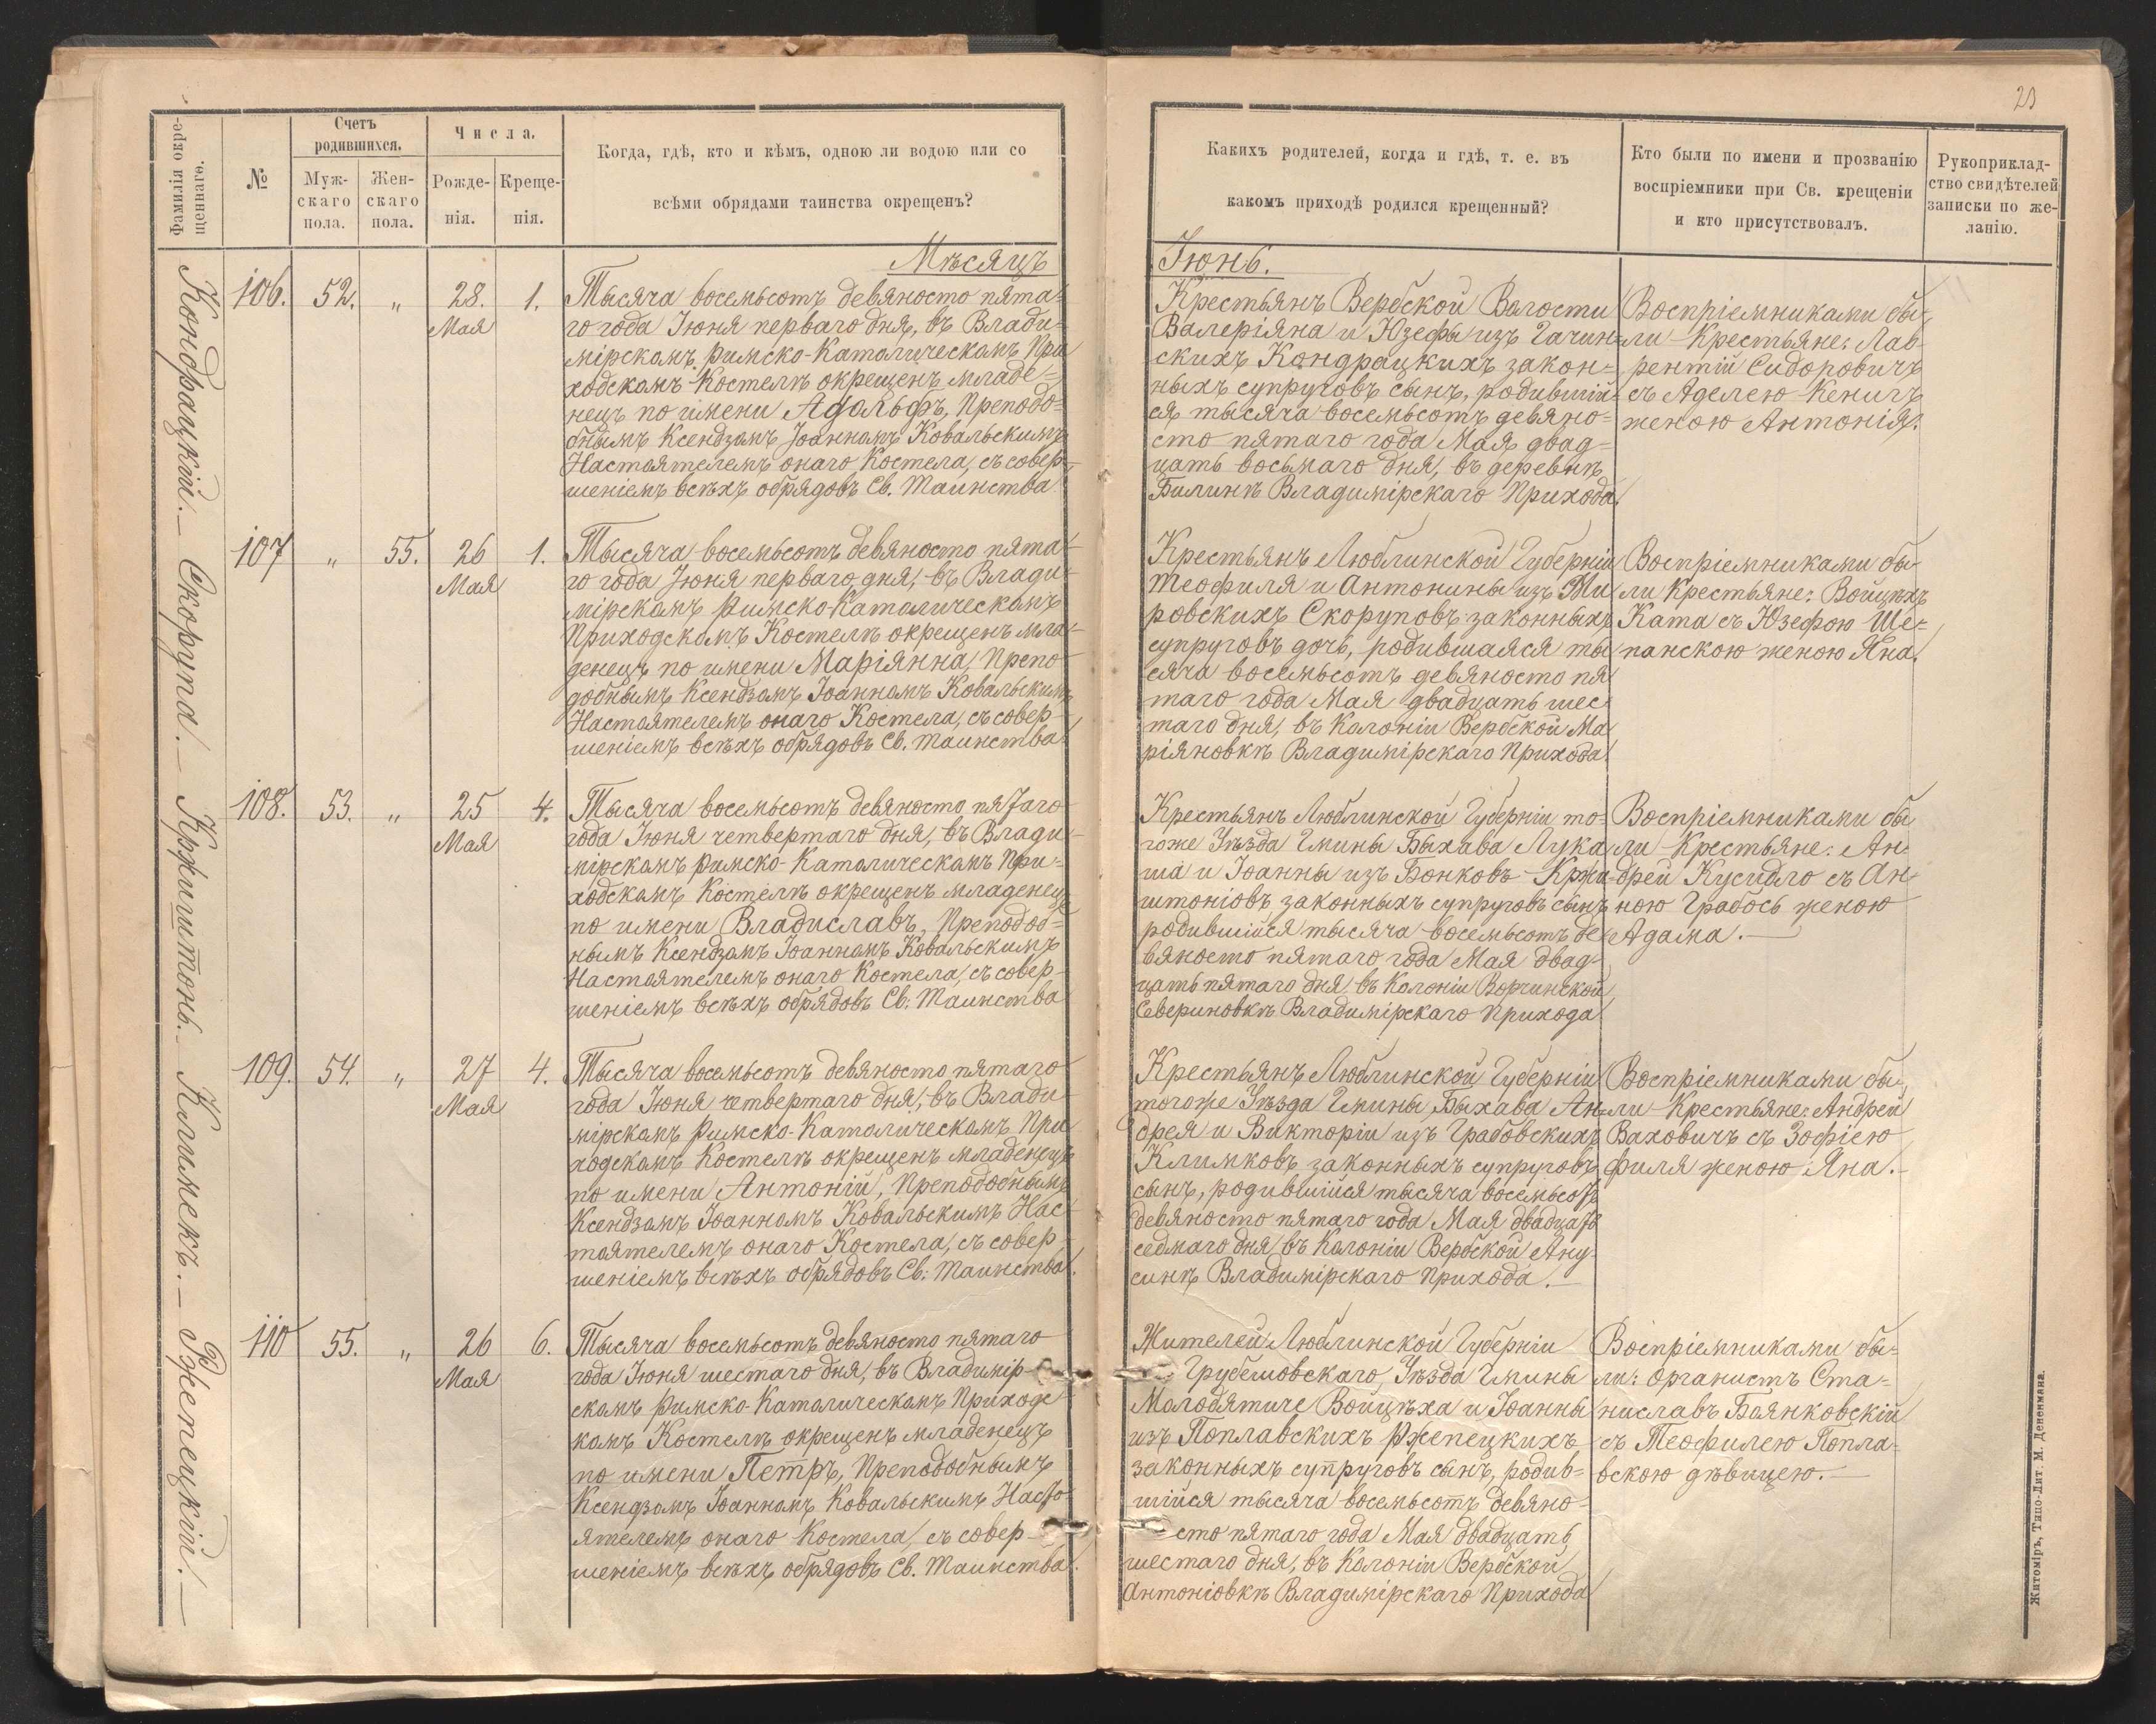 23
Фамилія окре-
щеннаго.
№
Счетъ
родившихся.
Муж-
скаго
пола.
Жен-
скаго
пола.
Числа.
Рожде-
нія.
Креще-
нія.
Когда, гдѣ, кто и кѣмъ, одною ли водою или со
всѣми обрядами таинства окрещенъ?
Какихъ родителей, когда и гдѣ, т. е. въ
какомъ приходѣ родился крещенный?
Кто были по имени и прозванію
воспріемники при Св. крещеніи
и кто присутствовалъ.
Рукоприклад-
ство свидѣтелей
записки по же-
ланію.
Мѣсяцъ
Іюнь.
Кондрацкій. —
106. 52. „ 28. 1.
Мая
Тысяча восемьсотъ девяносто пята-
го года Іюня перваго дня, въ Влади-
мірскомъ Римско-Католическомъ При
ходскомъ Костелѣ окрещенъ младе-
нецъ по имени Адольфъ, Преподо-
бнымъ Ксендзомъ Іоанномъ Ковальскимъ
Настоятелемъ онаго Костела, съ совер-
шеніемъ всѣхъ обрядовъ Св. Таинства.
Крестьянъ Вербской Волости
Валеріяна и Юзефы изъ Гачин-
скихъ Кондрацкихъ закон-
ныхъ супруговъ сынъ, родившій-
ся тысяча восемьсотъ девяно-
сто пятаго года Мая двад-
цать восьмаго дня, въ деревнѣ
Билинѣ Владимірскаго Прихода.
Воспріемниками бы-
ли Крестьяне: Лав-
рентій Сидоровичъ
съ Аделею Кеничъ
женою Антонія.
Скорупа. —
107 „ 55. 26 1.
Мая
Тысяча восемьсотъ девяносто пята-
го года Іюня перваго дня, въ Влади-
мірскомъ Римско-Католическомъ
Приходскомъ Костелѣ окрещенъ мла-
денецъ по имени Маріянна, Препо-
добнымъ Ксендзомъ Іоанномъ Ковальскимъ
Настоятелемъ онаго Костела, съ совер-
шеніемъ всѣхъ обрядовъ Св. Таинства.
Крестьянъ Люблинской Губерніи
Теофиля и Антонины изъ Ми
ровскихъ Скоруповъ законныхъ
супруговъ дочь, родившаяся ты
сяча восемьсотъ девяносто пя
таго года Мая двадцать шес
таго дня, въ Колоніи Вербской Ма
ріяновкѣ Владимірскаго Прихода.
Воспріемниками бы-
ли Крестьяне: Войцѣхъ
Ката съ Юзефою Ще-
панскою женою Яна.
Кржиштонь. —
108. 53. „ 25 4.
Мая
Тысяча восемьсотъ девяносто пятаго
года Іюня четвертаго дня, въ Влади-
мірскомъ Римско-Католическомъ При-
ходскомъ Костелѣ окрещенъ младенецъ
по имени Владиславъ, Преподоб-
нымъ Ксендзомъ Іоанномъ Ковальскимъ
Настоятелемъ онаго Костела, съ совер-
шеніемъ всѣхъ обрядовъ Св. Таинства
Крестьянъ Люблинской Губерніи то-
гоже Уѣзда Гмины Быхава Лука
ша и Іоанны изъ Бонковъ Кржи-
штоніовъ законныхъ супруговъ сынъ
родившійся тысяча восемьсотъ де
вяносто пятаго года Мая двад-
цать пятаго дня, въ Колоніи Ворчинской
Севериновкѣ Владимірскаго Прихода
Воспріемниками бы
ли Крестьяне: Ан-
дрей Кусидло съ Ан-
ною Грабось женою
Адама. —
Климекъ. —
109. 54. „ 27 4.
Мая
Тысяча восемьсотъ девяносто пятаго
года Іюня четвертаго дня, въ Влади-
мірскомъ Римско-Католическомъ При
ходскомъ Костелѣ окрещенъ младенецъ
по имени Антоній, Преподобнымъ
Ксендзомъ Іоанномъ Ковальскимъ Нас-
тоятелемъ онаго Костела, съ совер-
шеніемъ всѣхъ обрядовъ Св. Таинства.
Крестьянъ Люблинской Губерніи
тогоже Уѣзда Гмины Быхава Ан-
дрея и Викторіи изъ Грабовскихъ
Климковъ законныхъ супруговъ
сынъ, родившійся тысяча восемьсотъ
девяносто пятаго года Мая двадцать
седмаго дня, въ Колоніи Вербской Ану-
синѣ Владимірскаго Прихода. —
Воспріемниками бы-
ли Крестьяне: Андрей
Ваховичъ съ Зофіею
Филя женою Яна. —
Ржепецкій. —
110 55. „ 26 6.
Мая
Тысяча восемьсотъ девяносто пятаго
года Іюня шестаго дня, въ Владимір-
скомъ Римско-Католическомъ Приходс
комъ Костелѣ окрещенъ младенецъ
по имени Петръ, Преподобнымъ
Ксендзомъ Іоанномъ Ковальскимъ Насто-
ятелемъ онаго Костела, съ совер-
шеніемъ всѣхъ обрядовъ Св. Таинства.
Жителей Люблинской Губерніи
Грубешовскаго Уѣзда Гмины
Молодятиче Войцѣха и Іоанны
изъ Поплавскихъ Ржепецкихъ
законныхъ супруговъ сынъ, родив-
шійся тысяча восемьсотъ девяно-
сто пятаго года Мая двадцать
шестаго дня, въ Колоніи Вербской
Антоніовкѣ Владимірскаго Прихода
Воспріемниками бы-
ли: Органистъ Ста-
ниславъ Боянковскій
съ Теофилею Попла-
вскою дѣвицею. —
Житоміръ, Типо-Лит. М. Дененмана.